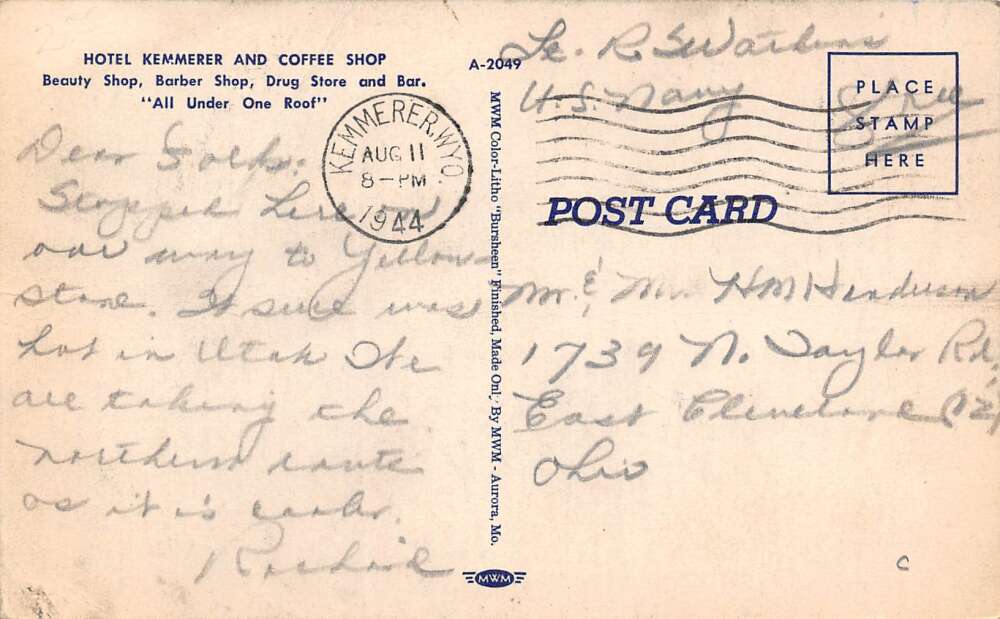 HOTEL KEMMERER AND COFFEE SHOP
Beauty Shop, Barber Shop, Drug Store and Bar.
"All Under One Roof"
Dear Folks:
Stopped here on
our way to Yellow-
stone. It sure was
hot in Utah We
are taking the
northern route
as it is cooler.
A-2049
MWM Color-Litho "Bursheen" Finished, Made Only By MWM - Aurora, Mo.
MWM
KEMMERER, WYO.
AUG 11
8-PM
1944
R S Watkins
U.S. Navy
Free
PLACE
STAMP
HERE
POST CARD
Mr. & Mrs HM Henderson
1739 N. Taylor Rd.
East Cleveland 12,
Ohio
C